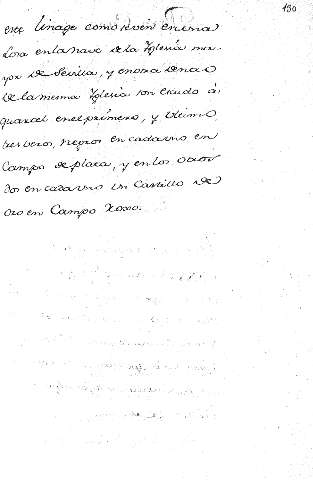 150
este linage como se ven en una
Losa en la nave de la Yglesia ma-
yor de Sevilla, y en otra de nao
de la mesma Yglesia son escudo à
quarcel en el primero, y ultimo
tres veros, negros en cada uno en
Campo de plata, y en los otros
dos en cada uno un Castillo de
oro en Campo Roxo.